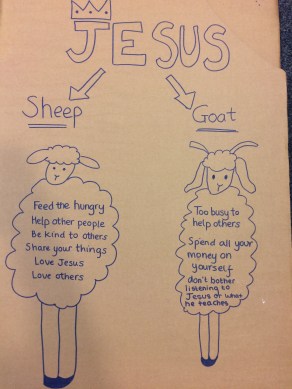 JESUS
Sheep
Goat
Feed the hungry
Help other people
Be kind to others
Share your things
Love Jesus
Love others
Too busy to
help others
Spend all your
money on
yourself
don't bother
listening to
Jesus or what
he teaches